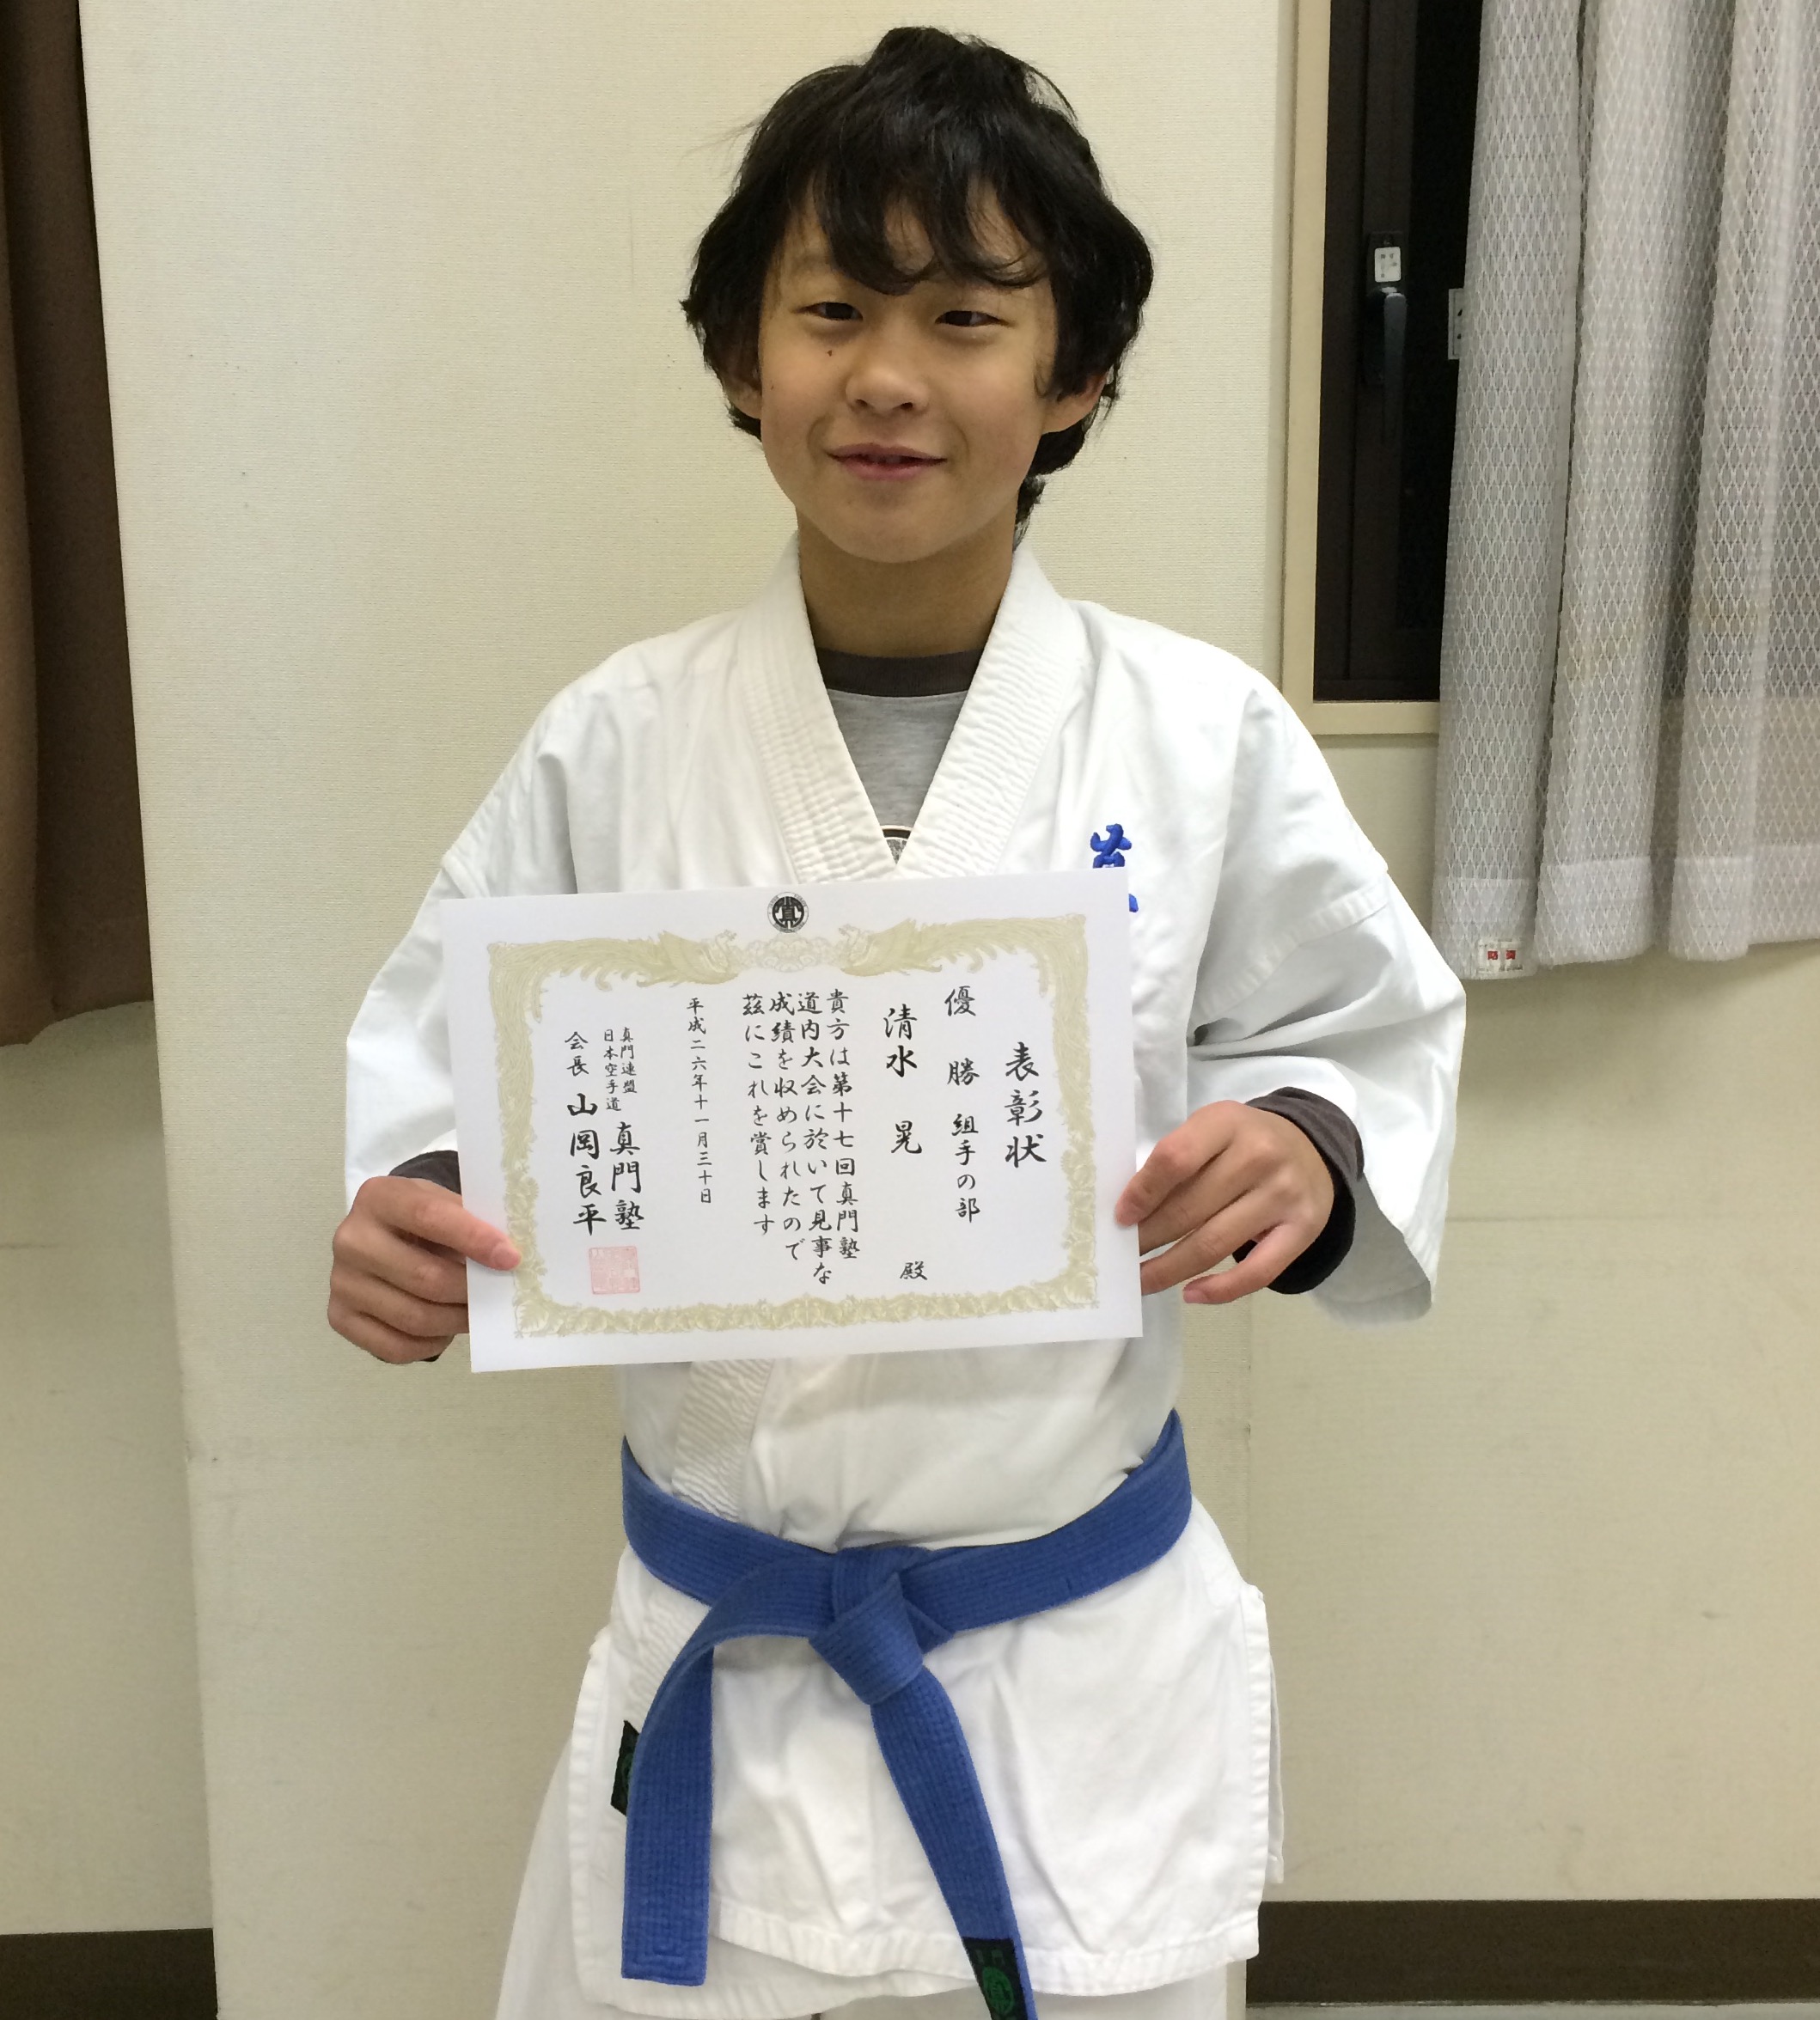 表彰状
優勝 組手の部
清水 晃 殿
貴方は第十七回真門塾
道内大会に於いて見事な
成績を収められたので
茲にこれを賞します
平成二六年十一月三十日
真門連盟
日本空手道 真門塾
会長 山岡良平
真
防炎